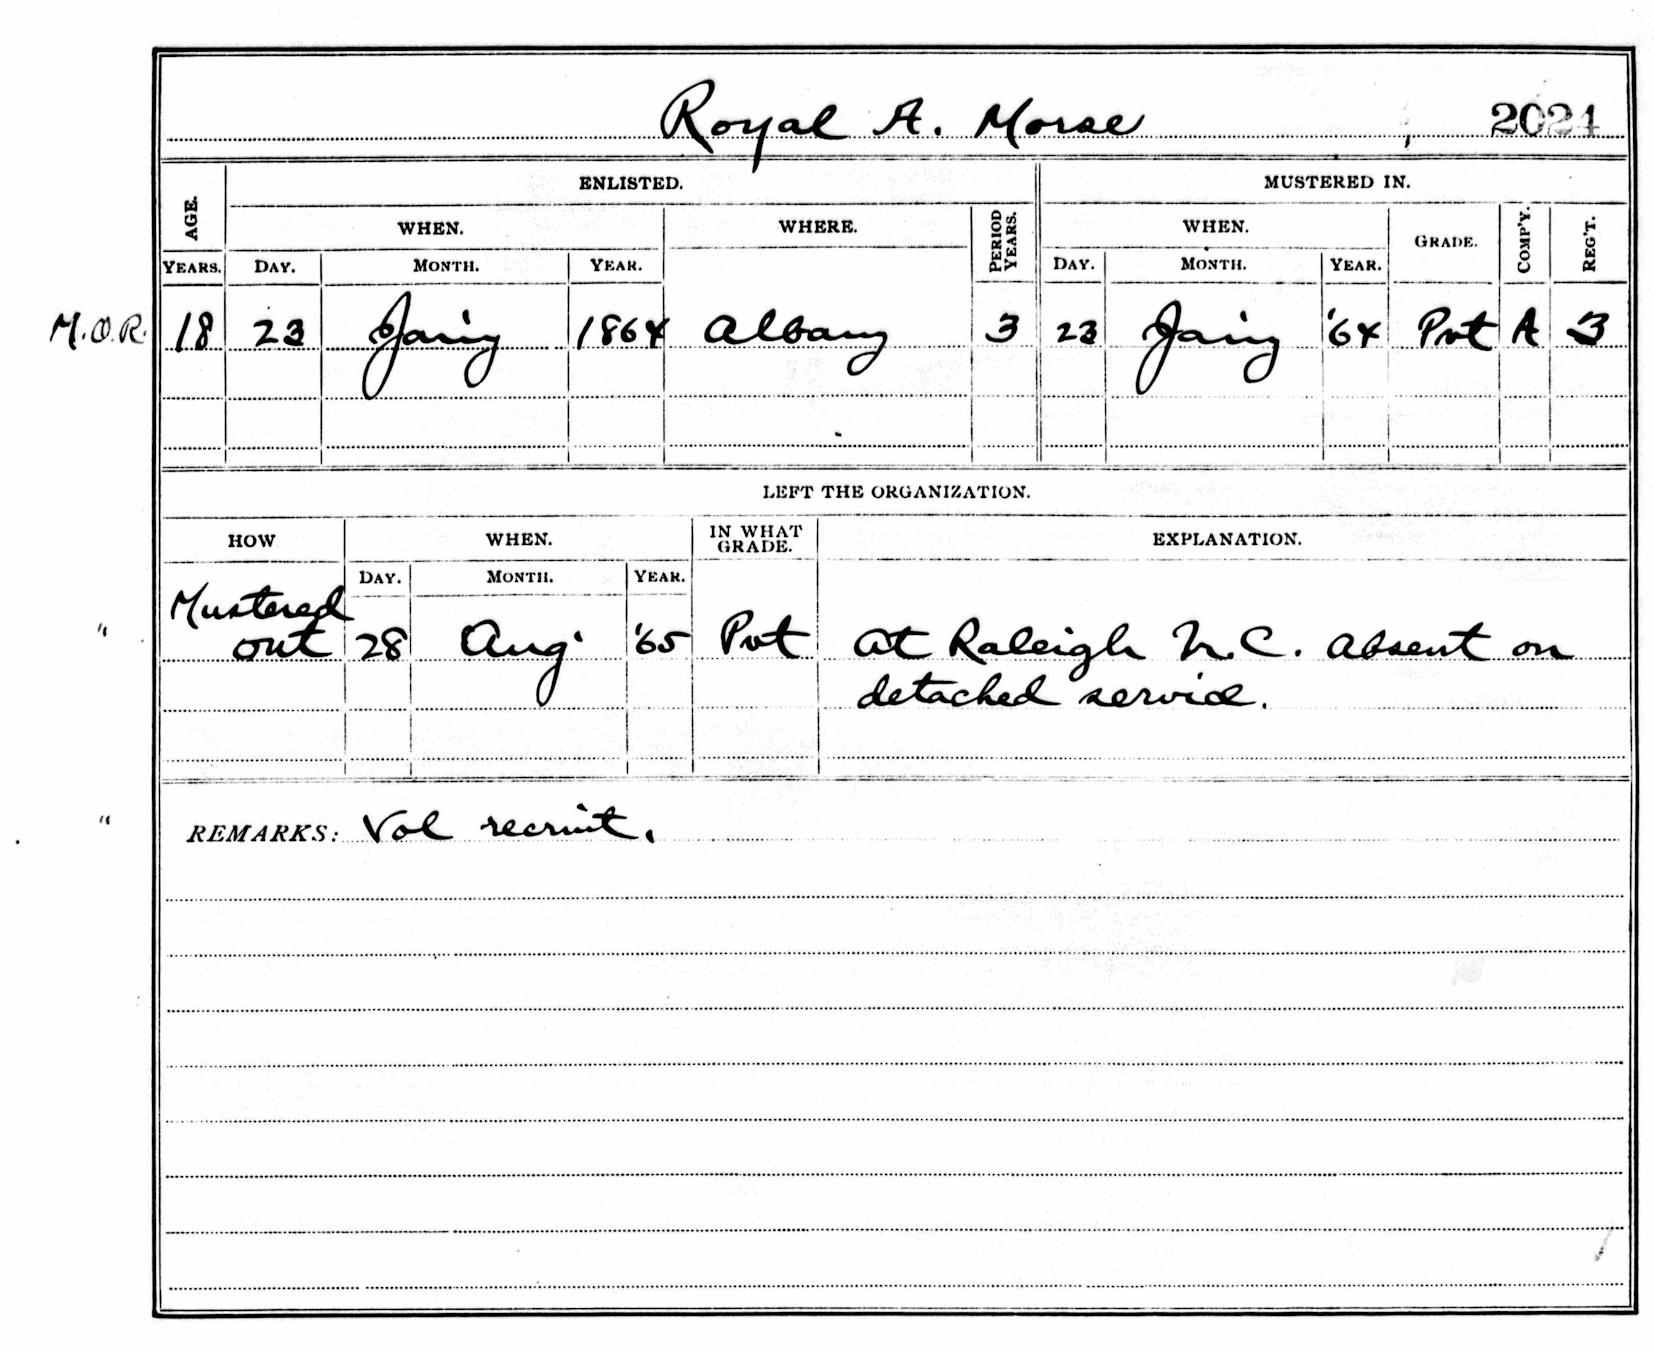 Royal A. Morse 2024
ENLISTED. MUSTERED IN.
AGE. WHEN. WHERE. PERIOD YEARS. WHEN. GRADE. COMP'Y. REG'T.
YEARS. DAY. MONTH. YEAR. DAY. MONTH. YEAR.
M.O.R. 18 23 Jany 1864 Albany 3 23 Jany '64 Pvt A 3
LEFT THE ORGANIZATION.
HOW WHEN. IN WHAT GRADE. EXPLANATION.
DAY. MONTH. YEAR.
Mustered
" out 28 Aug '65 Pvt at Raleigh N.C. absent on
detached service.
" REMARKS: Vol recruit.